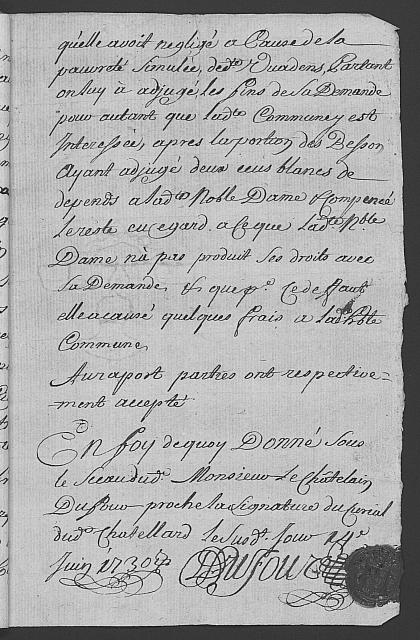 qu'elle avoit negligé a Cause de la
pauvreté simulée, ded.ts Evadens, Partant
on luy à adjugé les fins de sa Demande
pour autant que lad.te Commune y est
Interessée, apres la portion des Besson
Ayant adjugé deux ecus blancs de
depends a lad.te Noble Dame & compencé
le reste eu egard a ce que lad.te N.ble
Dame n'à pas produit ses droits avec
sa Demande, & que p.r Ce deffaut
elle a causé quelques frais a lad.te
Commune,
Au raport parties ont respective=
=ment accepté
En foy de quoy Donné Sous
le Sceau dud.t Monsieur Le Châtelain
Dufour proche la Signature du Curial
dud.t Chatellard le Susd.t Jour 14.e
Juin 1730
Dufour